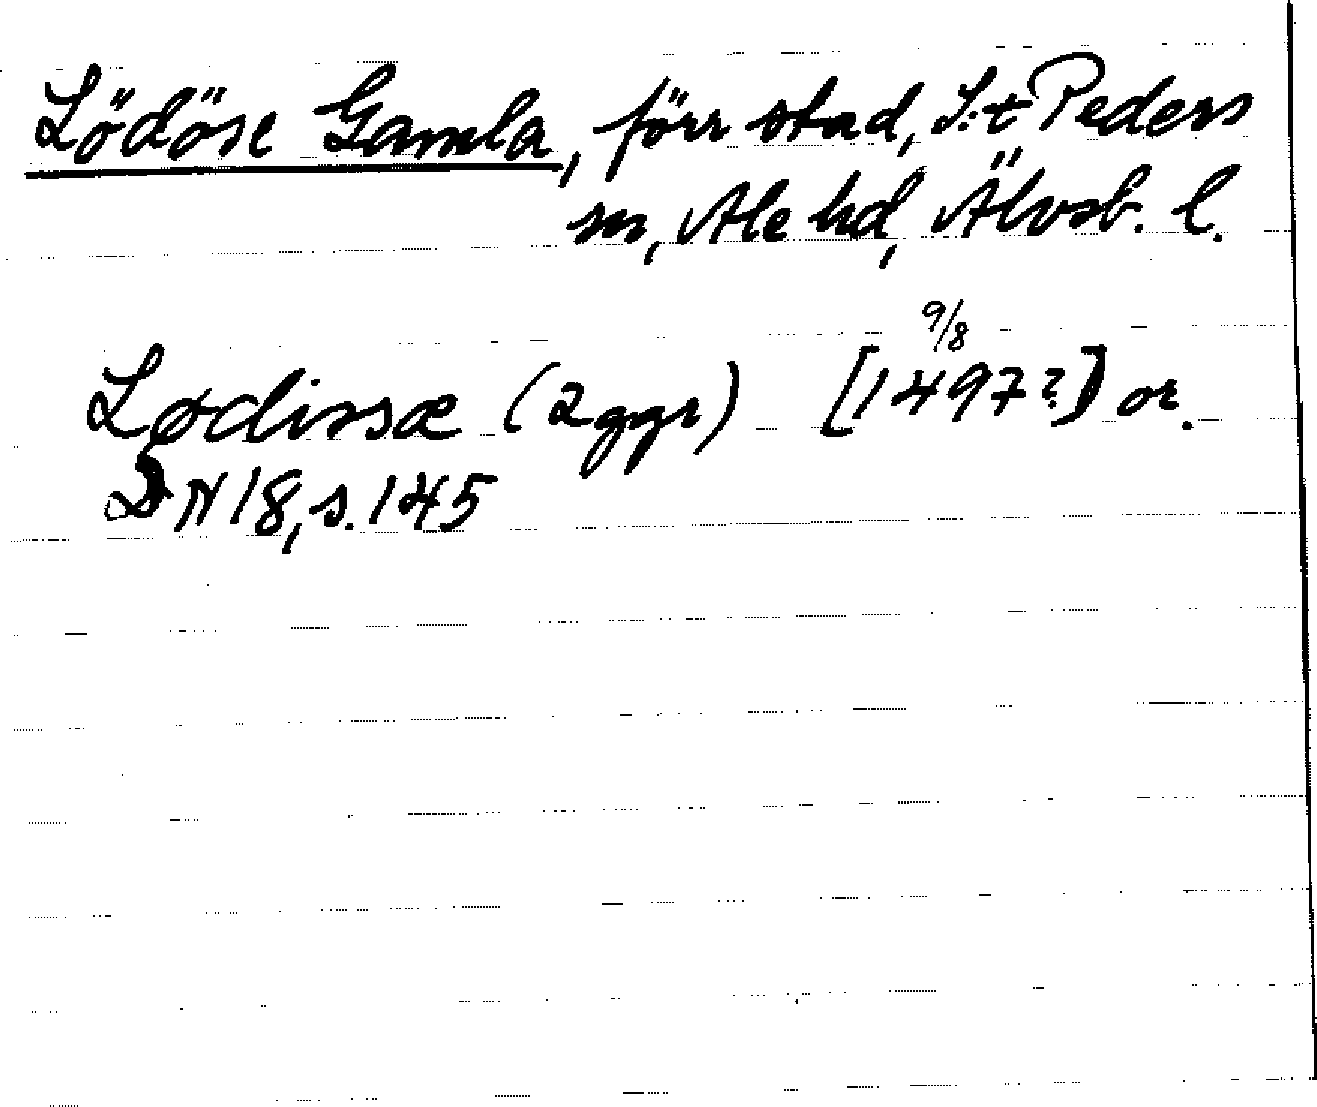 Lödöse Gamla, förr stad, S:t Peders
sn, Ale hd, Älvsb. l.
9/8
Lødissæ (2 ggr) [1497?] or.
DN 18, s. 145